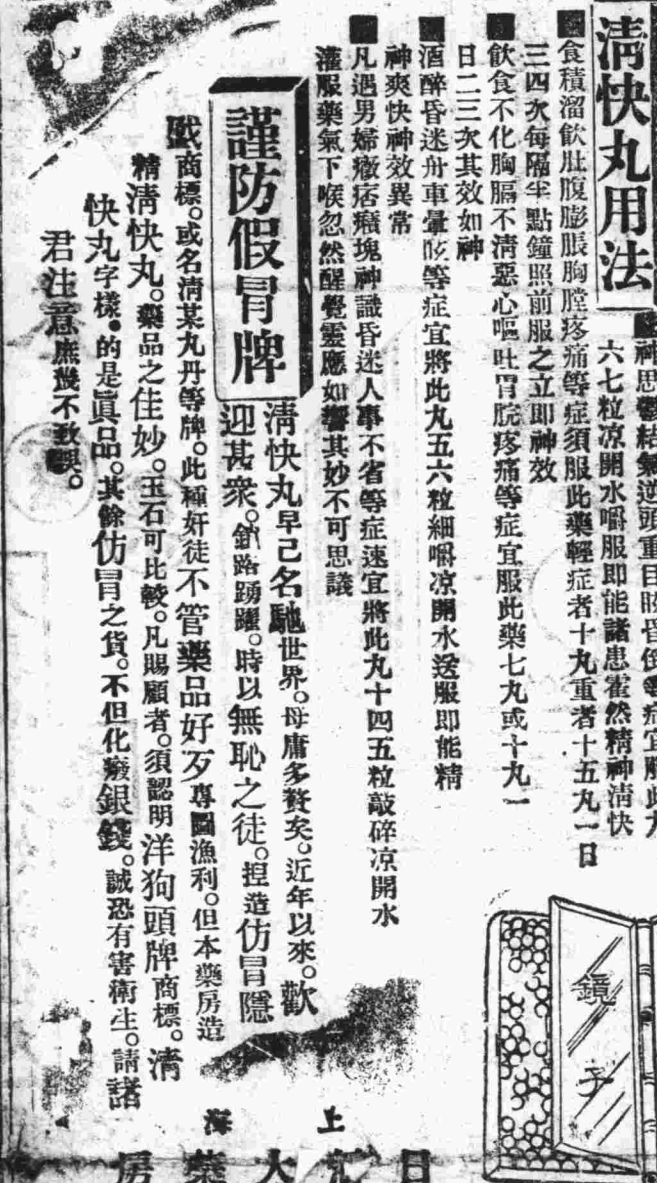 清快丸用法
神思鬱結氣逆頭重目眩昏倒等症宜服此丸
六七粒凉開水嚼服即能諸患霍然精神清快
食積溜飲肚腹膨脹胸膛疼痛等症須服此藥輕症者十丸重者十五丸一日
三四次每隔半點鐘照前服之立即神效
飲食不化胸膈不清惡心嘔吐胃脘疼痛等症宜服此藥七丸或十丸一
日二三次其效如神
酒醉昏迷舟車暈眩等症宜將此丸五六粒細嚼凉開水送服即能精
神爽快神效異常
凡遇男婦癥痞癪塊神識昏迷人事不省等症速宜將此丸十四五粒敲碎凉開水
灌服藥氣下喉忽然醒覺靈應如響其妙不可思議
謹防假冒牌
清快丸早已名馳世界。毋庸多贅矣。近年以來。歡
迎甚衆。銷路踴躍。時以無恥之徒。揑造仿冒隱
戤商標。或名淸某丸丹等牌。此種奸徒不管藥品好歹專圖漁利。但本藥房造
精淸快丸。藥品之佳妙。玉石可比較。凡賜顧者。須認明洋狗頭牌商標。淸
快丸字樣。的是眞品。其餘仿冒之貨。不但化廢銀錢。誠恐有害衛生。請諸
君注意庶幾不致誤。
鏡子
上海
日 大藥房